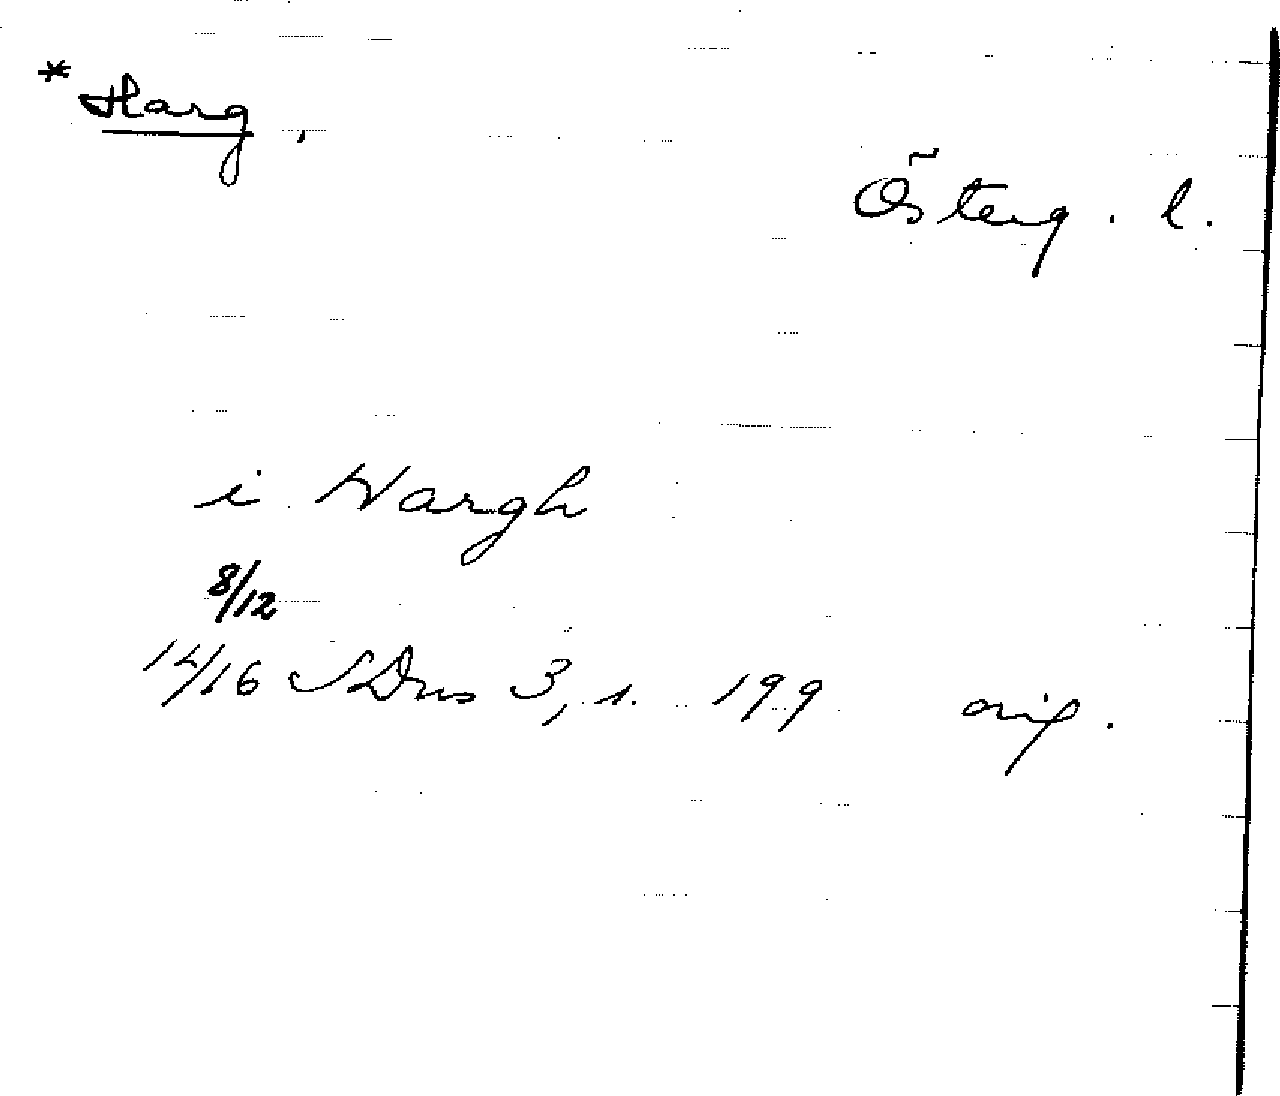 * Harg.
Österg. l.
i Hargh
8/12
1416 SDns 3, s. 199 orig.